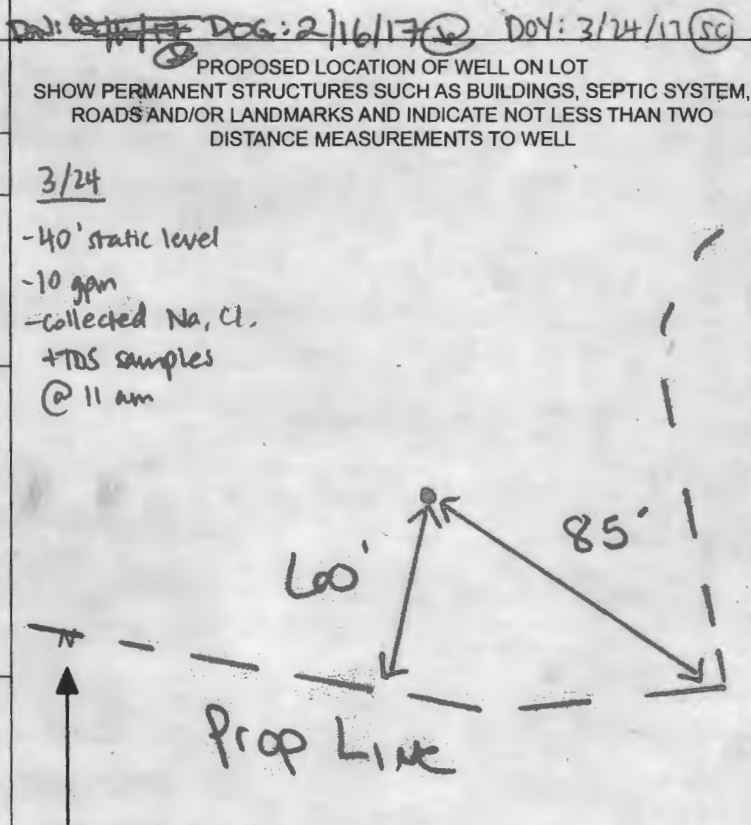 DOG: 2/16/17 DOY: 3/24/17 SC
PROPOSED LOCATION OF WELL ON LOT
SHOW PERMANENT STRUCTURES SUCH AS BUILDINGS, SEPTIC SYSTEM,
ROADS AND/OR LANDMARKS AND INDICATE NOT LESS THAN TWO
DISTANCE MEASUREMENTS TO WELL
3/24
-40' static level
-10 gpm
-collected Na, Cl,
+TDS samples
@ 11 am
85'
60'
N
Prop Line